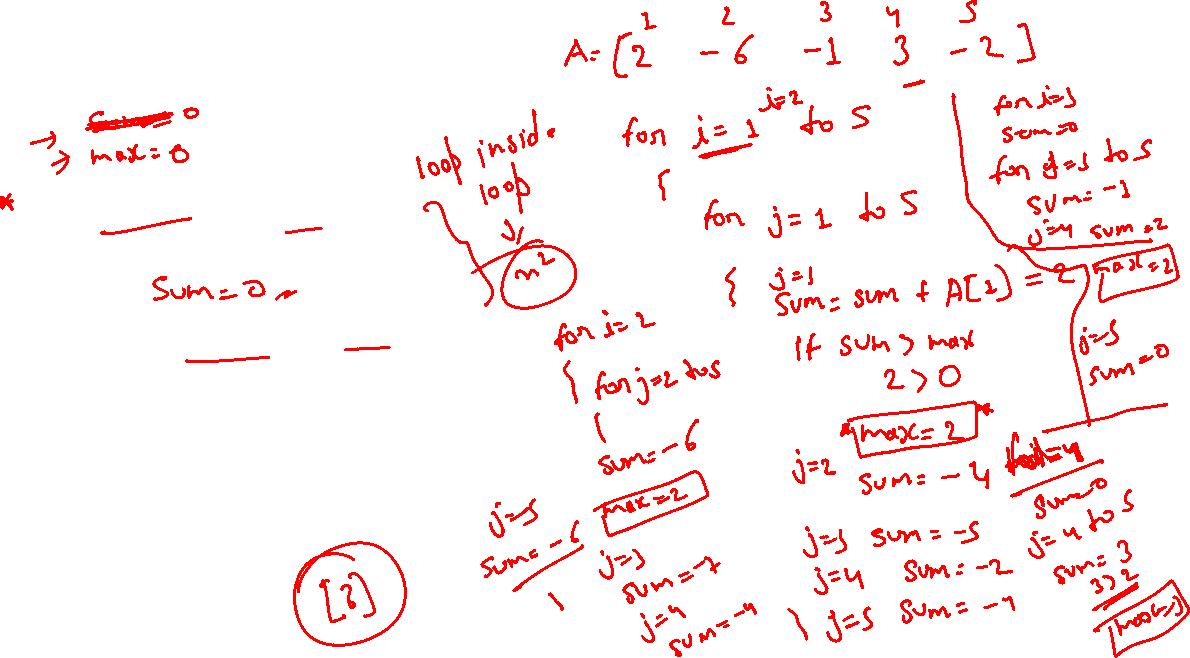 1 2 3 4 5
A = [2 -6 -1 3 -2]
0
→
→ max = 0
Sum = 0
loop inside
loop
n²
for i = 1 i=2 to 5
{
for j = 1 to 5
{ j=1
Sum = sum + A[1] = 2
If sum > max
2 > 0
max = 2
j=2 sum = -4
j=3 sum = -5
j=4 sum = -2
} j=5 sum = -4
for i = 2
{ for j=2 to 5
{
sum = -6
max = 2
j=3
sum = -7
j=4
sum = -4
j=5
sum = -6
for i=3
sum=0
for j=3 to 5
sum = -1
j=4 sum = 2
max = 2
j=5
sum = 0
sum=0
j=4 to 5
sum = 3
3 > 2
max = 3
[3]